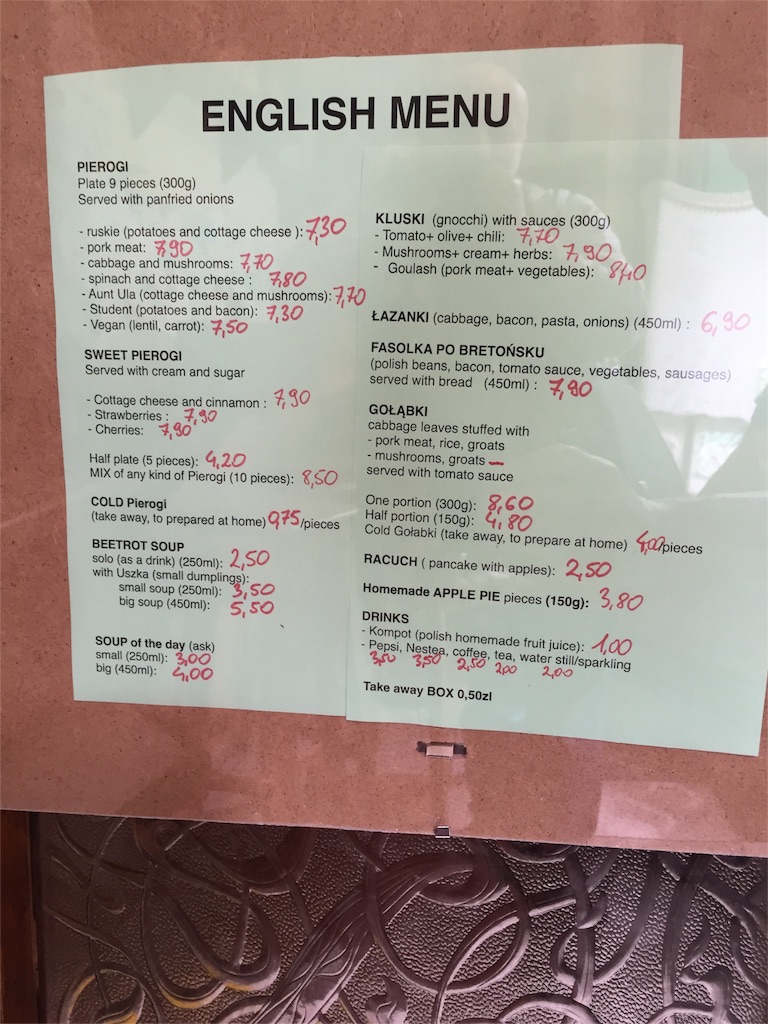 ENGLISH MENU
PIEROGI
Plate 9 pieces (300g)
Served with panfried onions
- ruskie (potatoes and cottage cheese ): 7,30
- pork meat: 7,90
- cabbage and mushrooms: 7,70
- spinach and cottage cheese : 7,80
- Aunt Ula (cottage cheese and mushrooms): 7,70
- Student (potatoes and bacon): 7,30
- Vegan (lentil, carrot): 7,50
SWEET PIEROGI
Served with cream and sugar
- Cottage cheese and cinnamon : 7,90
- Strawberries : 7,90
- Cherries: 7,90
Half plate (5 pieces): 4,20
MIX of any kind of Pierogi (10 pieces): 8,50
COLD Pierogi
(take away, to prepared at home) 0,75/pieces
BEETROT SOUP
solo (as a drink) (250ml): 2,50
with Uszka (small dumplings):
small soup (250ml): 3,50
big soup (450ml): 5,50
SOUP of the day (ask)
small (250ml): 3,00
big (450ml): 4,00
KLUSKI (gnocchi) with sauces (300g)
- Tomato+ olive+ chili: 7,70
- Mushrooms+ cream+ herbs: 7,90
- Goulash (pork meat+ vegetables): 8,10
ŁAZANKI (cabbage, bacon, pasta, onions) (450ml) : 6,90
FASOLKA PO BRETOŃSKU
(polish beans, bacon, tomato sauce, vegetables, sausages)
served with bread (450ml) : 7,90
GOŁĄBKI
cabbage leaves stuffed with
- pork meat, rice, groats
- mushrooms, groats —
served with tomato sauce
One portion (300g): 8,60
Half portion (150g): 4,80
Cold Gołabki (take away, to prepare at home) 4,00/pieces
RACUCH ( pancake with apples): 2,50
Homemade APPLE PIE pieces (150g): 3,80
DRINKS
- Kompot (polish homemade fruit juice): 1,00
- Pepsi, Nestea, coffee, tea, water still/sparkling
3,50 3,50 2,50 2,00 2,00
Take away BOX 0,50zl